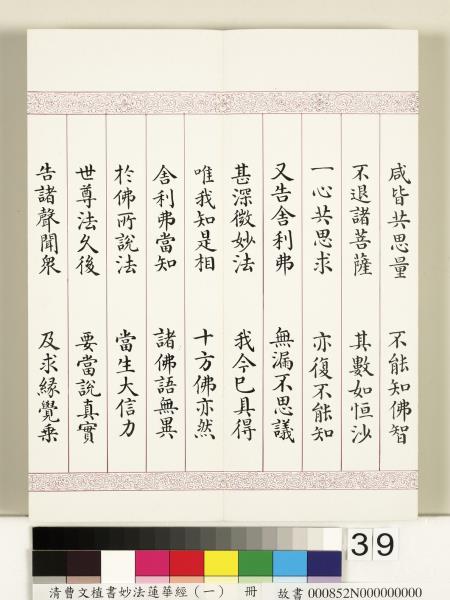 咸皆共思量　不能知佛智
不退諸菩薩　其數如恒沙
一心共思求　亦復不能知
又告舍利弗　無漏不思議
甚深微妙法　我今已具得
唯我知是相　十方佛亦然
舍利弗當知　諸佛語無異
於佛所說法　當生大信力
世尊法久後　要當說真實
告諸聲聞衆　及求緣覺乗
39
清曹文植書妙法蓮華經（一）　冊　故書 000852N000000000